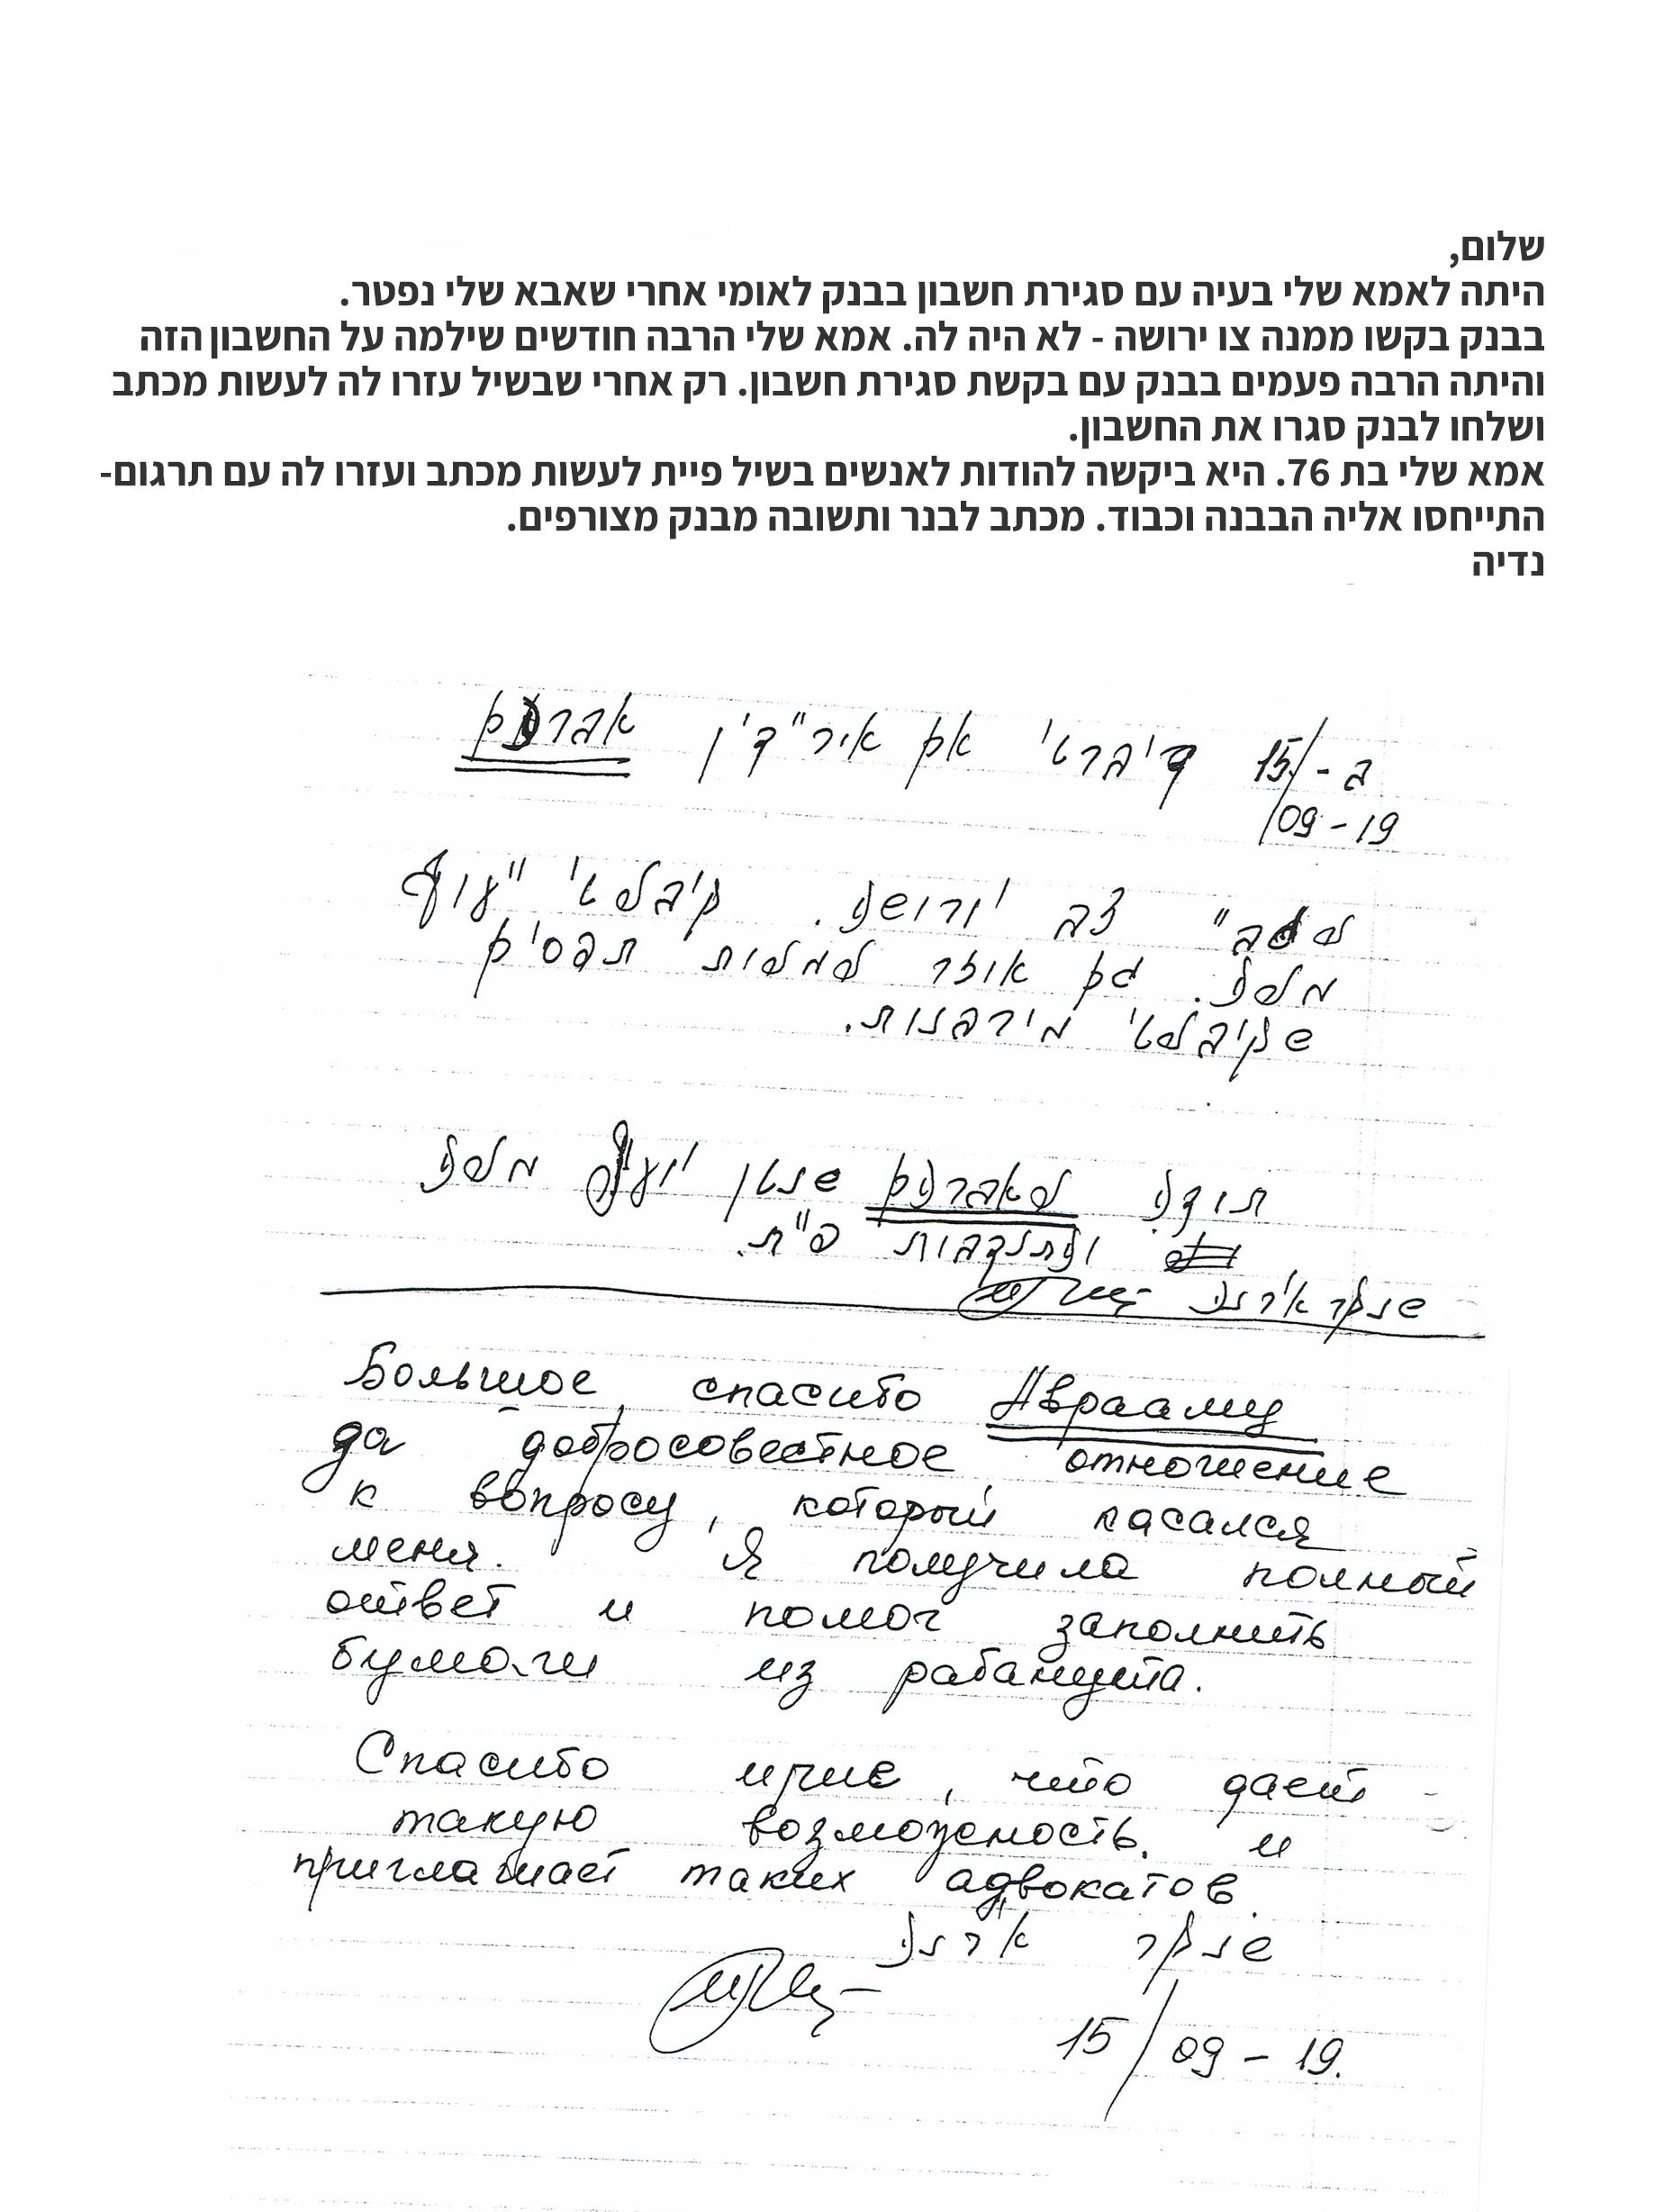 שלום,
היתה לאמא שלי בעיה עם סגירת חשבון בבנק לאומי אחרי שאבא שלי נפטר.
בבנק בקשו ממנה צו ירושה - לא היה לה. אמא שלי הרבה חודשים שילמה על החשבון הזה
והיתה הרבה פעמים בבנק עם בקשת סגירת חשבון. רק אחרי שבשיל עזרו לה לעשות מכתב
ושלחו לבנק סגרו את החשבון.
אמא שלי בת 76. היא ביקשה להודות לאנשים בשיל פיית לעשות מכתב ועזרו לה עם תרגום-
התייחסו אליה הבבנה וכבוד. מכתב לבנר ותשובה מבנק מצורפים.
נדיה
ב- 15/ דיברטי אם
09-19
ירושה. קיבלטי
מלה. גם אוזר למלות תפסים
שקיבלטי מירבנות.
תודה לאברהם שנטן יועץ מלה
והתנדבות פ"ת.
שנקר ארנה
Большое спасибо Аврааму
да добросовестное отношение
к вопросу, который касался
меня. Я получила полный
ответ и помог заполнить
бумаги из рабанута.
Спасибо ирие, что даёт
такую возможность. и
приглашает таких адвокатов.
שנקר ארנה
15/09-19.